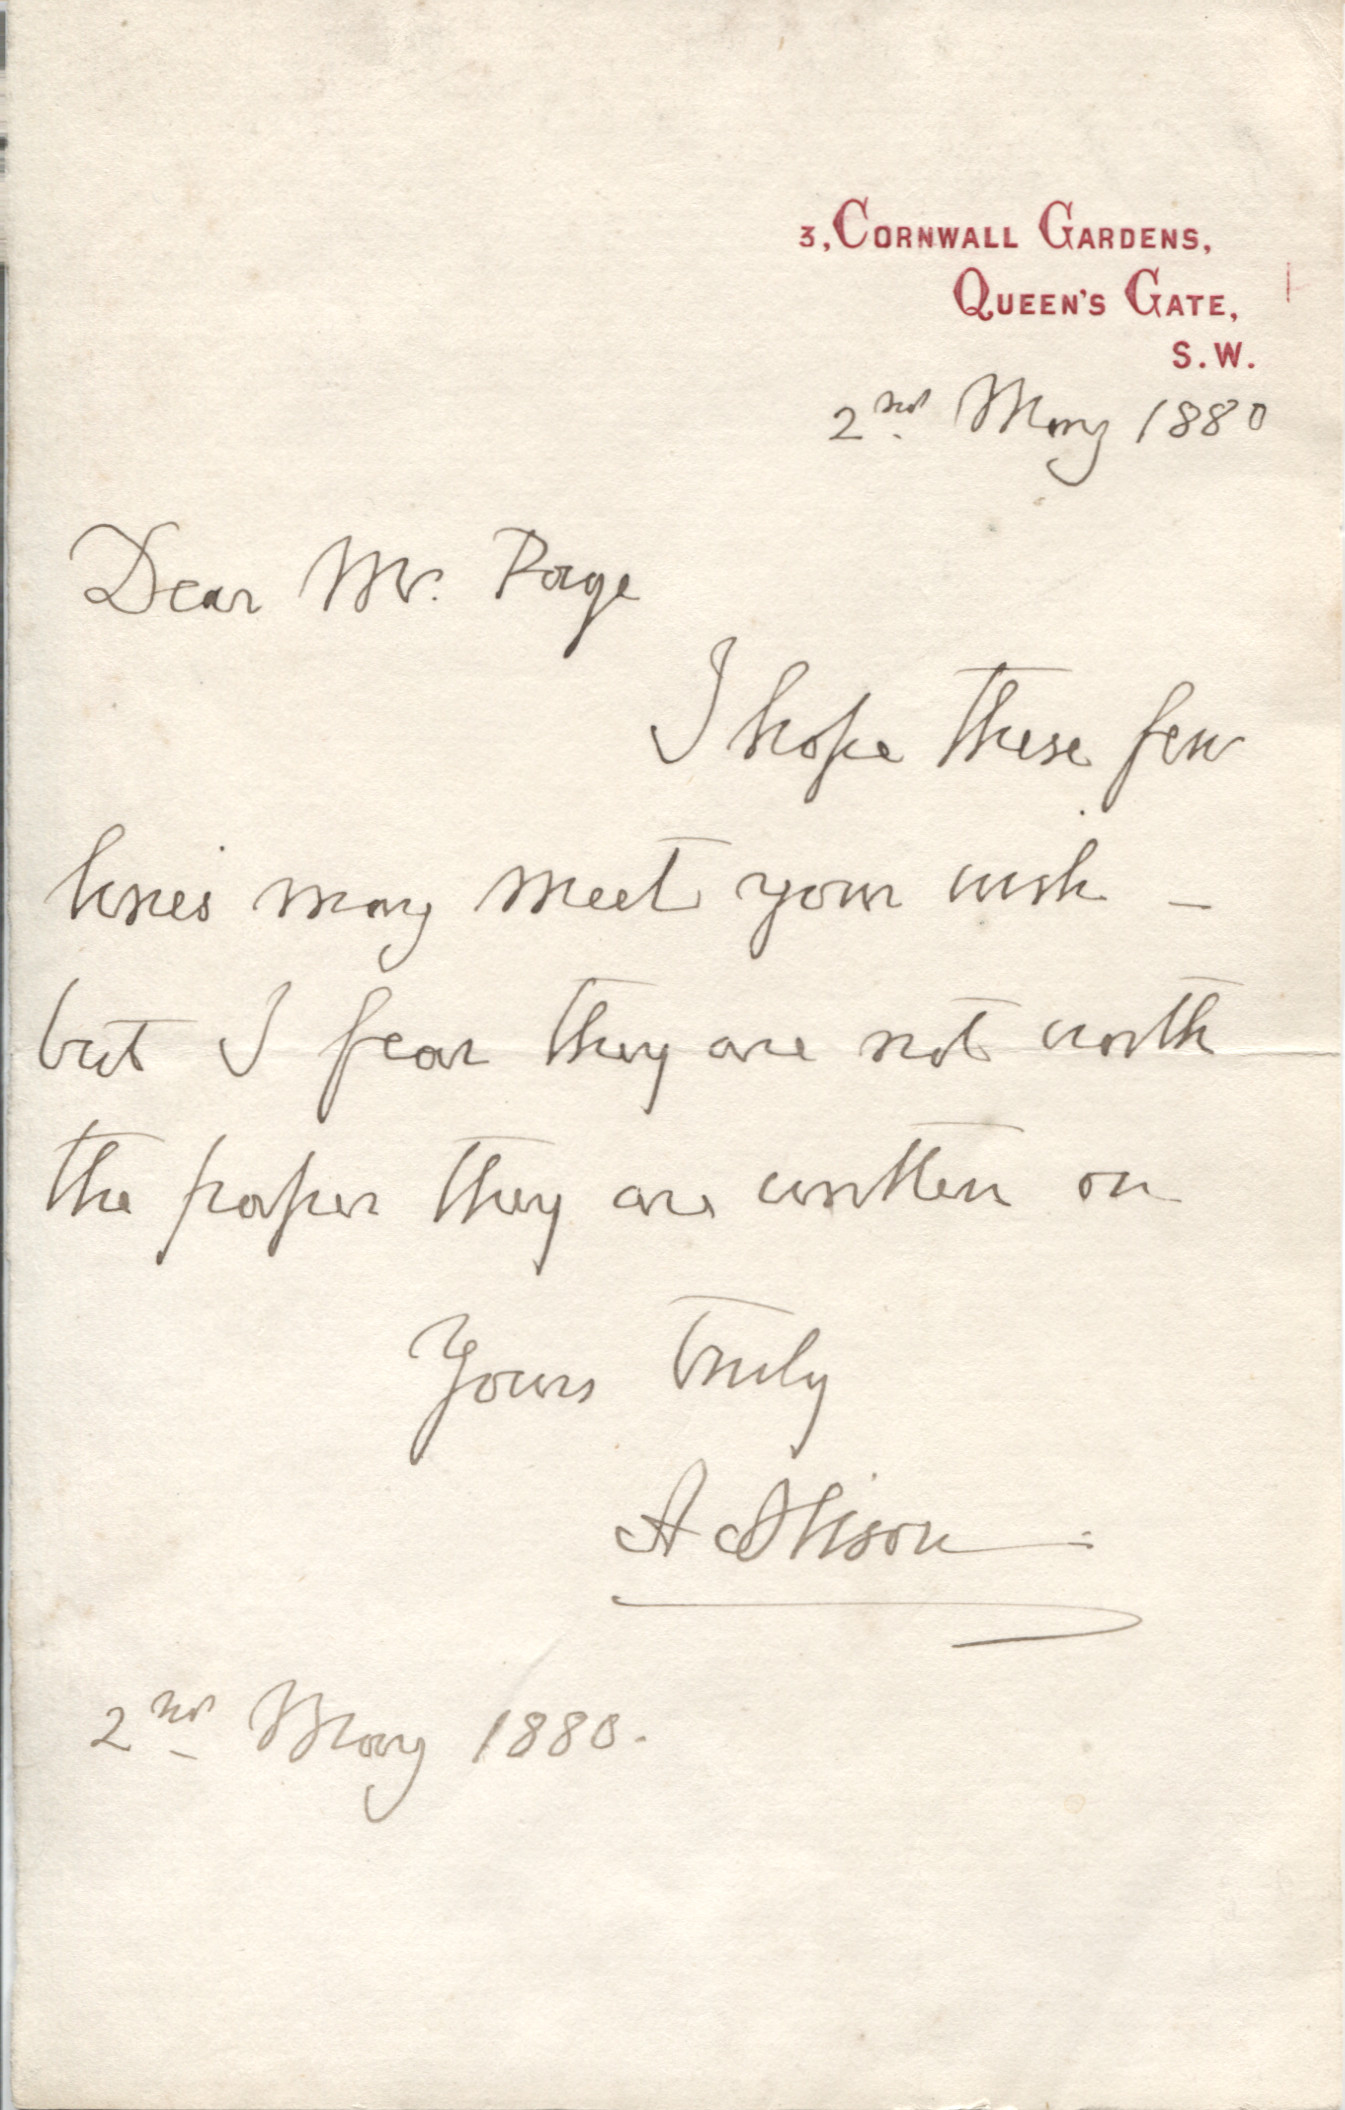 3, CORNWALL GARDENS,
QUEEN'S GATE,
S.W.
2nd. May 1880
Dear Mr. Page
I hope these few
lines may meet your wish –
but I fear they are not worth
the paper they are written on
Yours truly
A Alison
2nd May 1880.